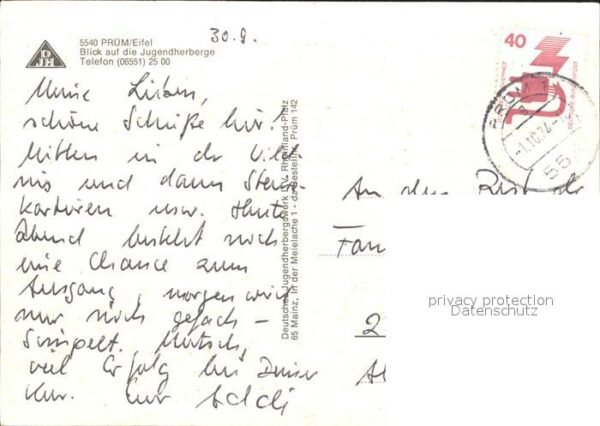 30.9.
5540 PRÜM/Eifel
Blick auf die Jugendherberge
Telefon (06551) 25 00
DJH
Meine Lieben,
schöne Grüße hier!
Mitten in der
und dann
kartieren usw. Heute
Abend besteht noch
eine Chance zum
Ausgang, morgen wird
nur noch gefach-
simpelt. Mutsch,
viel Erfolg bei Deiner
Kur. Eur Addi
Deutsches Jugendherbergswerk LV Rheinland-Pfalz
65 Mainz, In der Meielache 1 - dz-Bestellnr. Prüm 142
40
DEUTSCHE BUNDESPOST
PRÜM 1
-1.10.74
An den Rest der
Fam
2
privacy protection
Datenschutz